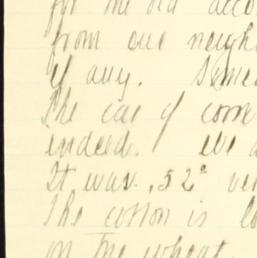 for me old acco
from our neigh
if any. Some
The ear of corn
indeed. We a
It was .52° ve
The cotton is lo
on the wheat.